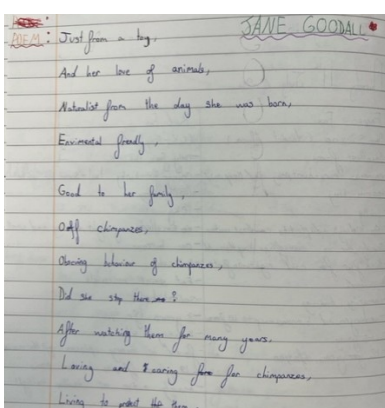 JANE GOODALL
POEM: Just from a toy,
And her love of animals,
Naturalist from the day she was born,
Envimental freindly,
Good to her family,
chimpanzes,
behaviour of chimpanzes,
Did she stop there, no?
After watching them for many years,
Loving and caring for chimpanzes,
Living to protect them